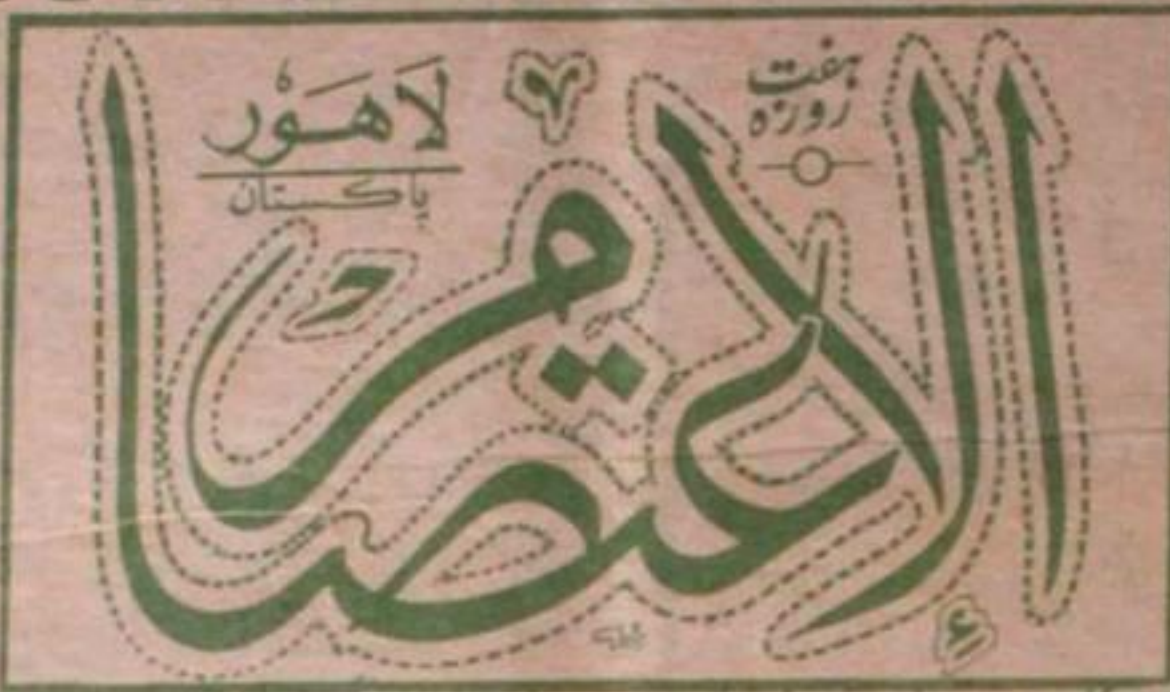 ہفت روزہ
الاعتصام
لاہور
پاکستان